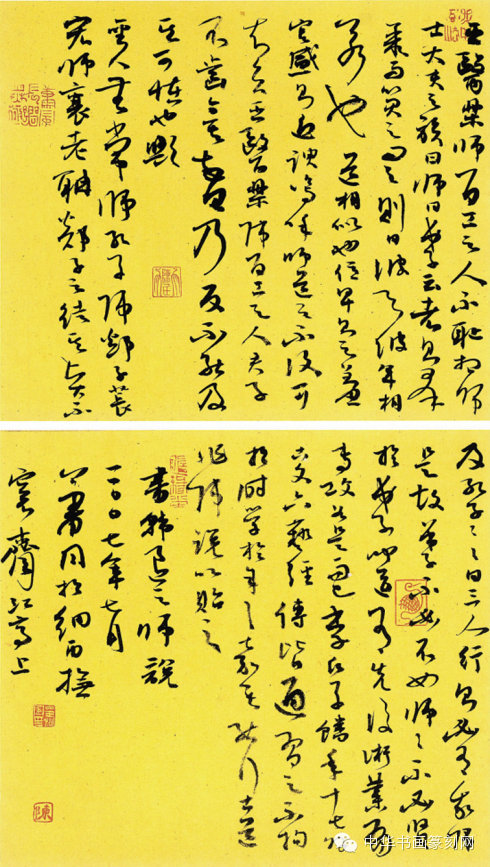 巫醫樂師百工之人不恥相師
士大夫之族曰師曰弟子云者則群
聚而笑之問之則曰彼與彼年相
若也道相似也位卑則足羞
官盛則近諛嗚呼師道之不復可
知矣巫醫樂師百工之人君子
不齒今其智乃反不能及
其可怪也歟
聖人無常師孔子師郯子萇
弘師襄老聃郯子之徒其賢不
及孔子〻〻曰三人行則必有我師
是故弟子不必不如師〻不必賢
於弟子聞道有先後術業有
專攻如是而已李氏子蟠年十七好
古文六藝經傳皆通習之不拘
於時學於余〻嘉其能行古道
作師說以貽之
書韓退之師說
二〇〇七年七月
中华书画篆刻网